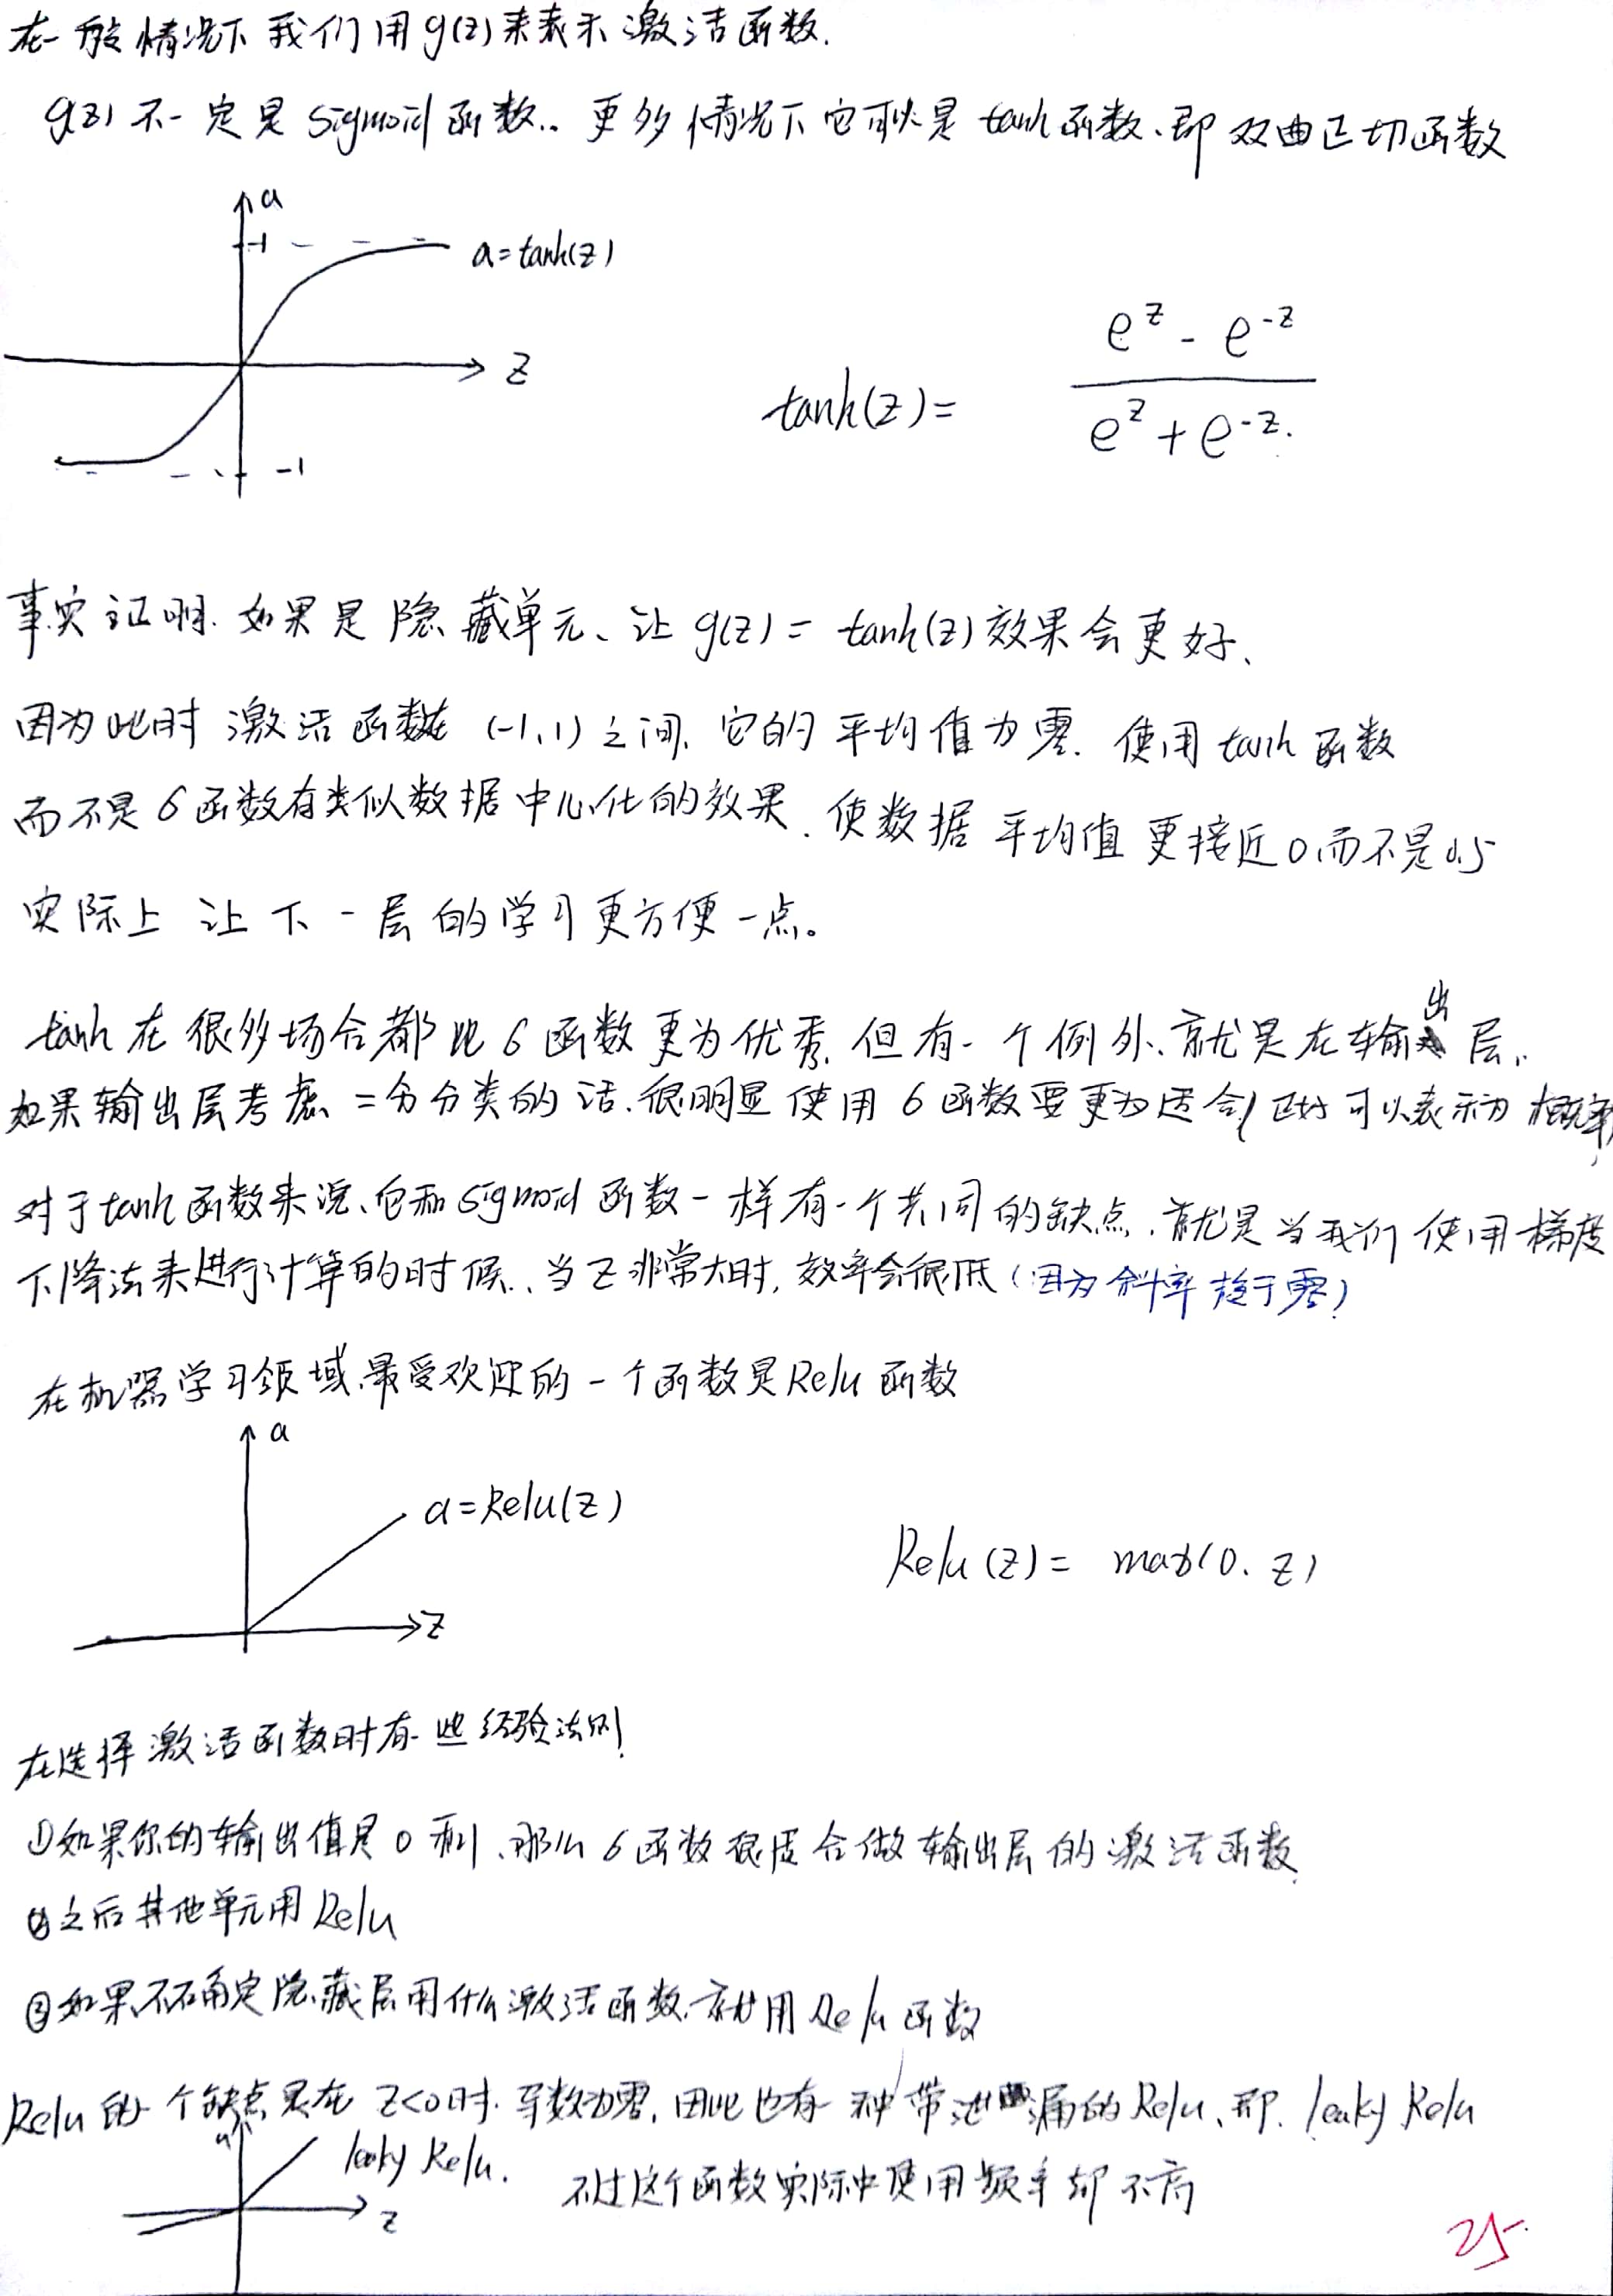 在一般情况下 我们用g(z)来表示激活函数.
g(z)不一定是sigmoid函数.. 更多情况下它可以是tanh函数、即双曲正切函数
a
1
a=tanh(z)
z
-1
tanh(z)= (e^z - e^-z) / (e^z + e^-z)
事实证明.如果是隐藏单元、让g(z)=tanh(z)效果会更好、
因为此时激活函数在(-1,1)之间,它的平均值为零. 使用tanh函数
而不是σ函数有类似数据中心化的效果.使数据平均值更接近0而不是0.5
实际上 让下一层的学习更方便一点。
tanh在很多场合都比σ函数更为优秀.但有一个例外、就是在输出层、
如果输出层考虑二分分类的话.很明显使用σ函数要更为适合(正好可以表示为概率
对于tanh函数来说、它和sigmoid函数一样有一个共同的缺点.就是当我们使用梯度
下降法来进行计算的时候.、当z非常大时,效率会很低(因为斜率趋于零)
在机器学习领域,最受欢迎的一个函数是Relu函数
a
a=Relu(z)
z
Relu(z)= max(0, z)
在选择激活函数时有一些经验法则!
①如果你的输出值是0和1、那么σ函数很适合做输出层的激活函数
②之后其他单元用Relu
③如果不确定隐藏层用什么激活函数.就用Relu函数
Relu的一个缺点是在z<0时.导数为零.因此也有一种带泄漏的Relu、即.leaky Relu
a
leaky Relu.
z
不过这个函数实际中使用频率却不高
25